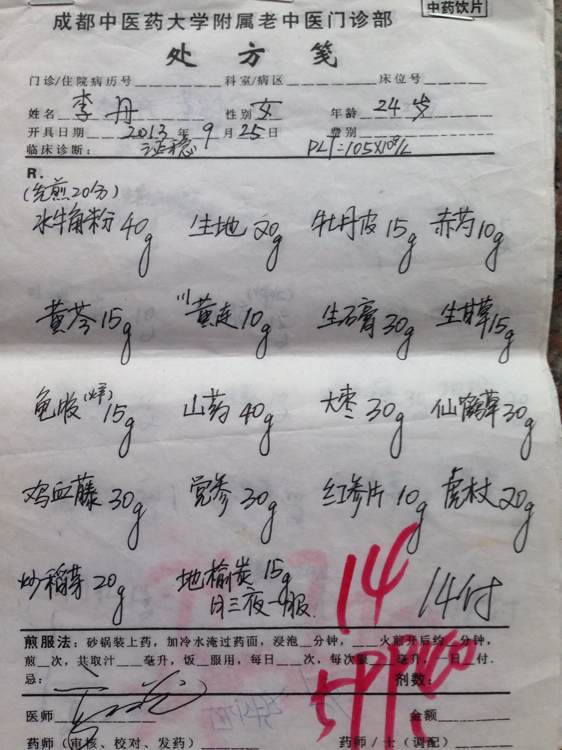 中药饮片
成都中医药大学附属老中医门诊部
处方笺
门诊/住院病历号 科室/病区 床位号
姓名 李丹 性别 女 年龄 24岁
开具日期 2013年9月25日 费别
临床诊断: 证稳 PLT=105×10⁹/L
R.
(先煎20分)
水牛角粉40g 生地20g 牡丹皮15g 赤芍10g
黄芩15g 川黄连10g 生石膏30g 生甘草15g
龟版(烊)15g 山药40g 大枣30g 仙鹤草30g
鸡血藤30g 党参30g 红参片10g 虎杖20g
炒稻芽20g 地榆炭15g 14 14付
日三夜一服.
煎服法: 砂锅装上药,加冷水淹过药面,浸泡 分钟, 火煎开后约 分钟,
煎 次,共取汁 毫升,饭 服用,每日 次,每次服 毫升, 日 付.
忌: 剂数:
医师 金额
药师(审核、校对、发药) 药师/士(调配)